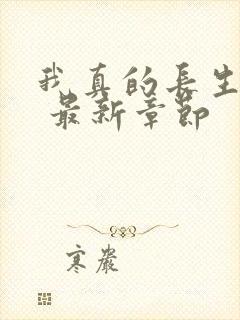 我真的長生
最新章節
寒巖